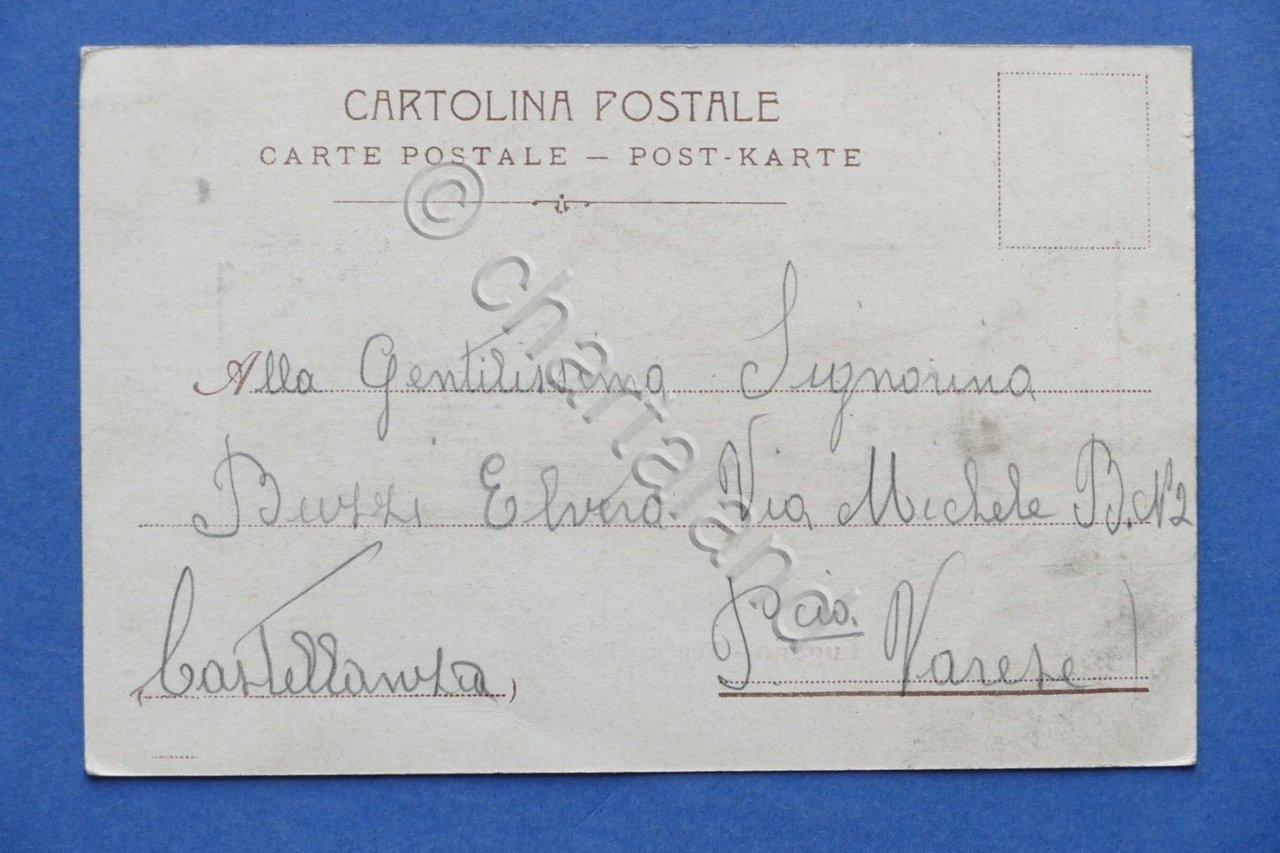 CARTOLINA POSTALE
CARTE POSTALE — POST-KARTE
Alla Gentilissima Signorina
Buzzi Elvera Via Michele B. N2
(Castellanza) P.cia. Varese
© chartaland